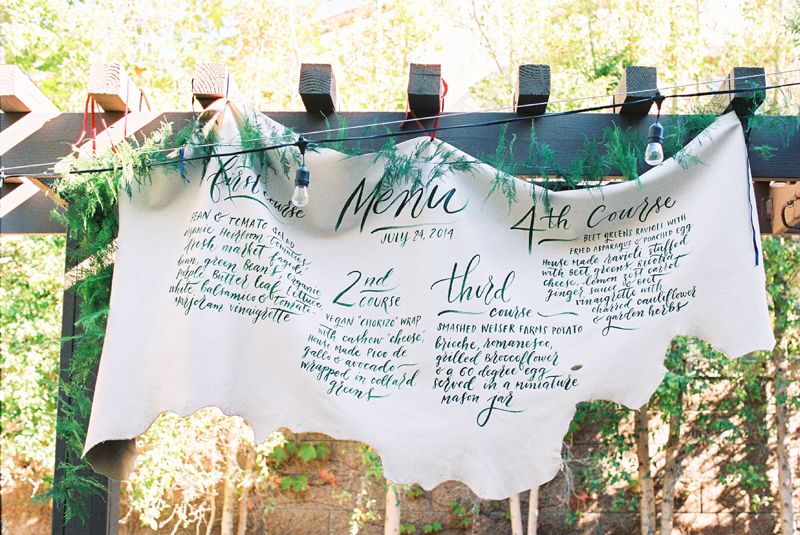 Menu
JULY 24, 2014
first
course
BEAN & TOMATO SALAD
organic Heirloom tomatoes
fresh market
green Beans, organic
purple Butter leaf lettuce
white balsamico & tomato-
marjoram vinaigrette
2nd
COURSE
VEGAN "CHORIZO" WRAP
with cashew "cheese",
House made Pico de
gallo & avocado
wrapped in collard
greens
third
course
SMASHED WEISER FARMS POTATO
brioche, romanesco,
grilled Broccoflower
& a 60 degree egg
served in a miniature
mason jar
4th Course
BEET GREENS RAVIOLI WITH
FRIED ASPARAGUS & POACHED EGG
House made ravioli stuffed
with Beet greens, Ricotta
cheese, lemon zest carrot
ginger sauce & Beet
vinaigrette with
charred cauliflower
& garden herbs